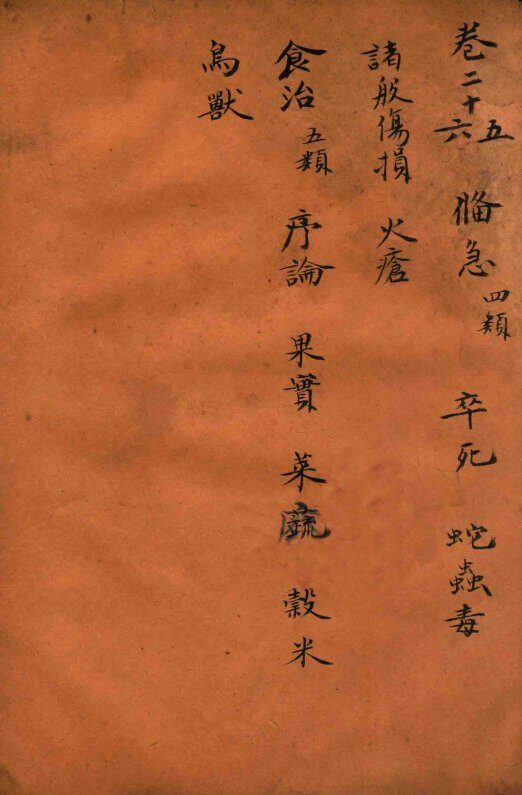 卷二十五六 備急 四類 卒死 蛇蟲毒
諸般傷損 火瘡
食治 五類 序論 果實 菜蔬 穀米
鳥獸